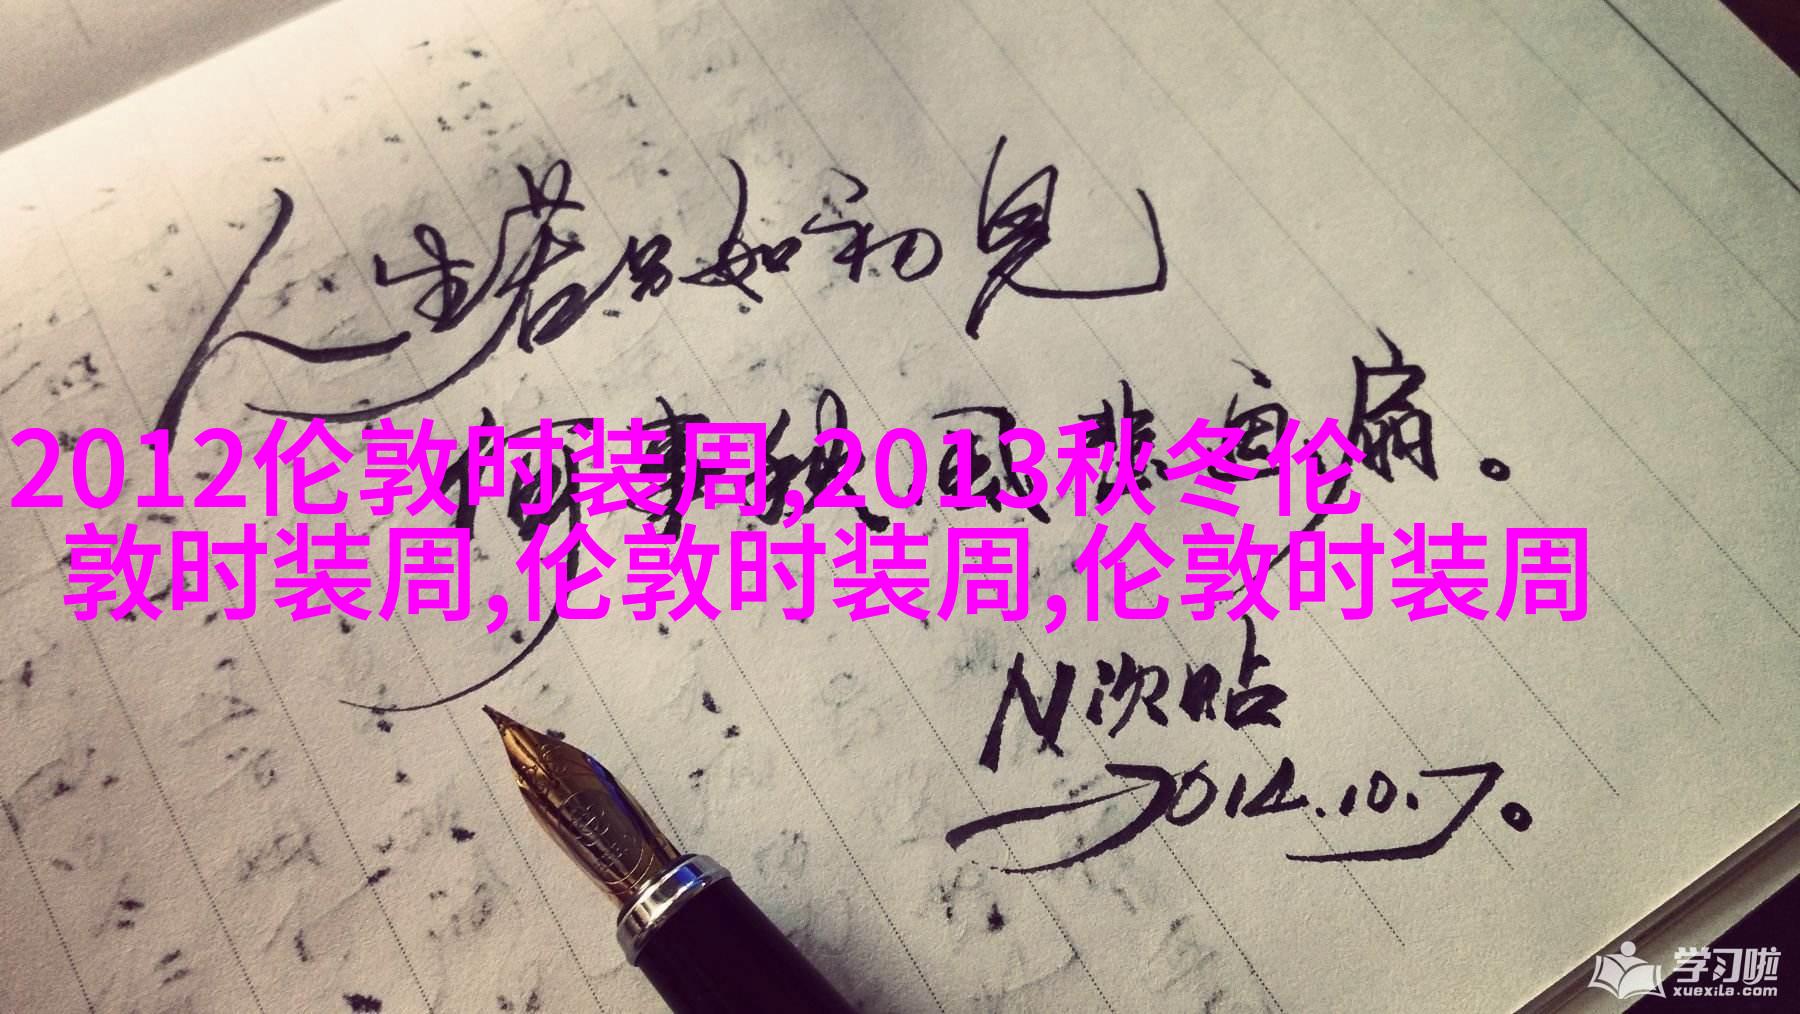 人生若只如初见
何事秋风悲画扇。
2012伦敦时装周,2013秋冬伦
敦时装周,伦敦时装周,伦敦时装周
N次贴
2014.10.7。
学习啦
xuexila.com